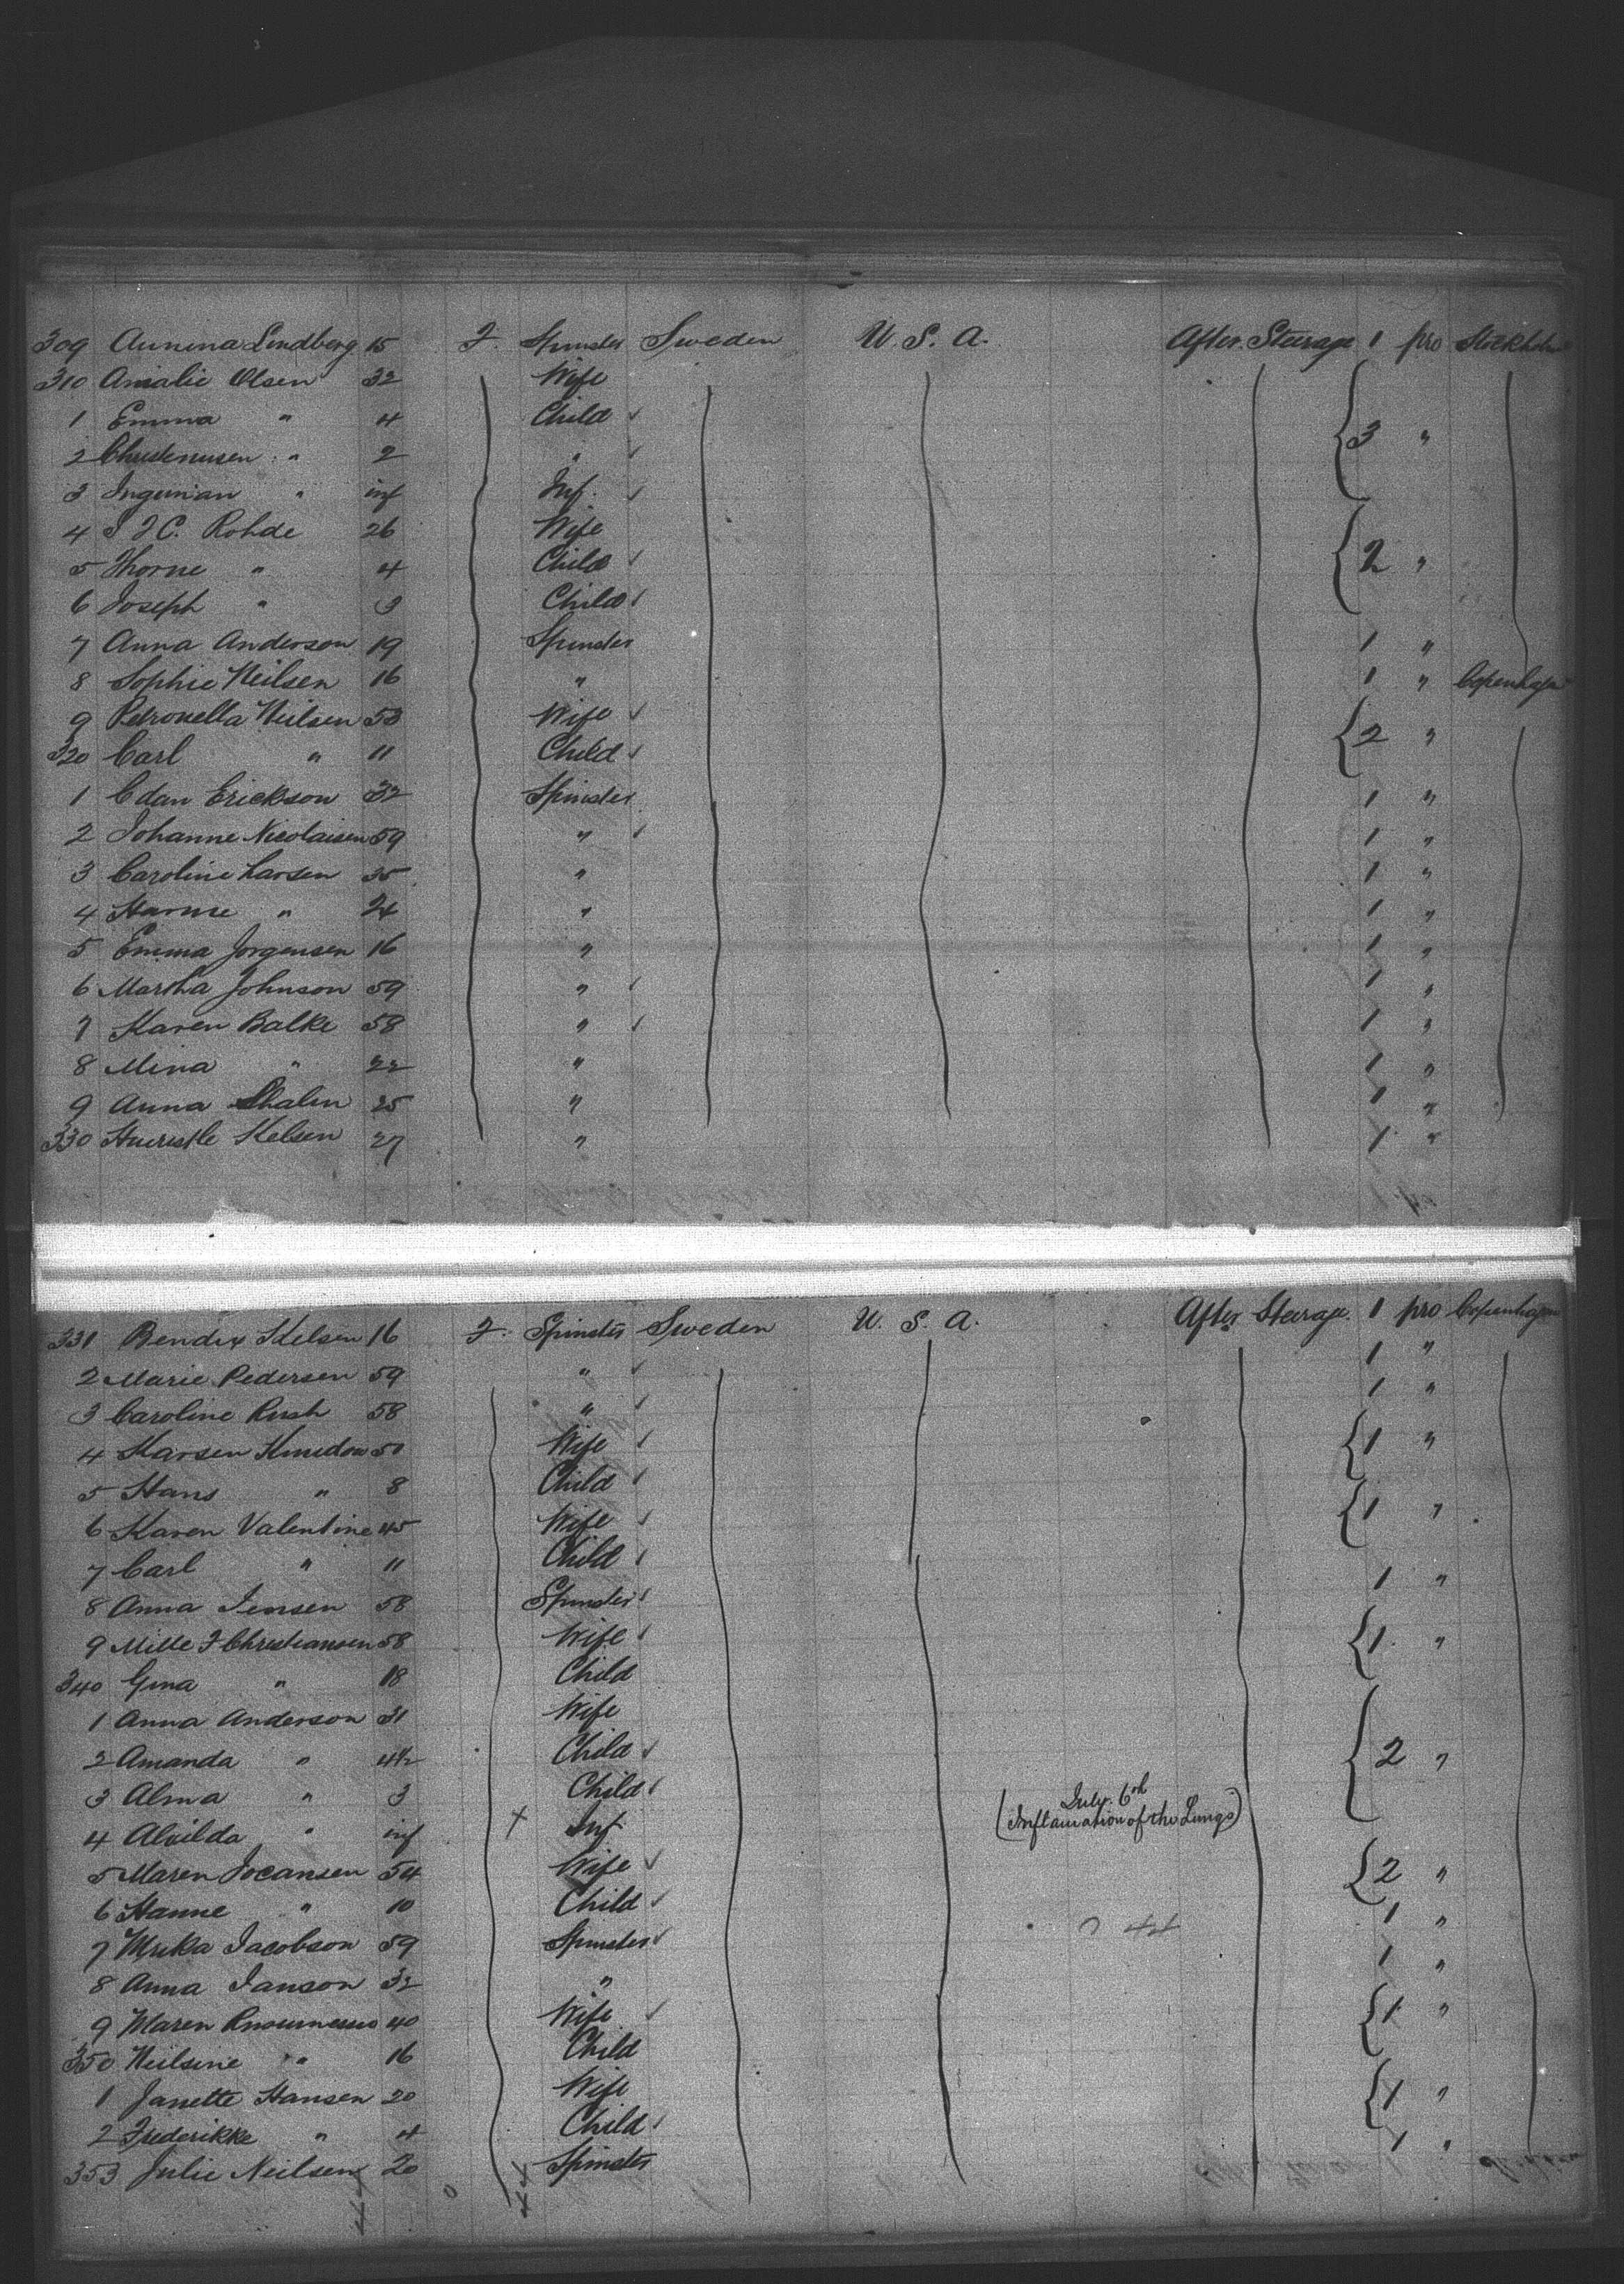 309 Annina Lindberg 15 F. Spinster Sweden U. S. A. After Steerage 1 pro Stockholm
310 Amalie Olsen 32 Wife
1 Emma " 4 Child ✓ 3 "
2 " 2 " ✓
3 " inf Inf. ✓
4 Rohde 26 Wife
5 Thorne " 4 Child ✓ 2 "
6 Joseph " 3 Child ✓
7 Anna Anderson 19 Spinster 1 "
8 Sophie Neilsen 16 " 1 " Copenhagen
9 Petronella Neilsen 53 Wife ✓ 2 "
320 Carl " 11 Child ✓
1 Erickson 32 Spinster 1 "
2 Johanne Nicolaisen 59 " ✓ 1 "
3 Caroline Larsen 35 " 1 "
4 " 24 " 1 "
5 Emma Jorgensen 16 " 1 "
6 Martha Johnson 59 " ✓ 1 "
7 Karen Balke 58 " ✓ 1 "
8 Mina " 22 " 1 "
9 Anna 25 " 1 "
330 Kelsen 27 " 1 "
331 Bendix Kelsen 16 F. Spinster Sweden U. S. A. After Steerage. 1 pro Copenhagen
2 Marie Pedersen 59 " ✓ 1 "
3 Caroline Rush 58 " ✓ 1 "
4 Karsen 50 Wife ✓ 1 "
5 Hans " 8 Child ✓
6 Karen Valentine 45 Wife ✓ 1 "
7 Carl " 11 Child ✓
8 Anna Jensen 58 Spinster ✓ 1 "
9 Mille F Christiansen 58 Wife ✓ 1 "
340 Gina " 18 Child
1 Anna Anderson 31 Wife
2 Amanda " 4½ Child ✓ 2 "
3 Alma " 3 Child ✓
4 Alvilda " inf + Inf July. 6th
(Inflamation of the Lungs)
5 Maren 54 Wife ✓ 2 "
6 Hanne " 10 Child ✓
7 Jacobson 59 Spinster ✓ 1 "
8 Anna Janson 32 " 1 "
9 Maren 40 Wife ✓ 1 "
350 Neilsine " 16 Child
1 Janette Hansen 20 Wife 1 "
2 Frederikke " 4 Child ✓
353 Julie Neilsen 20 Spinster 1 "